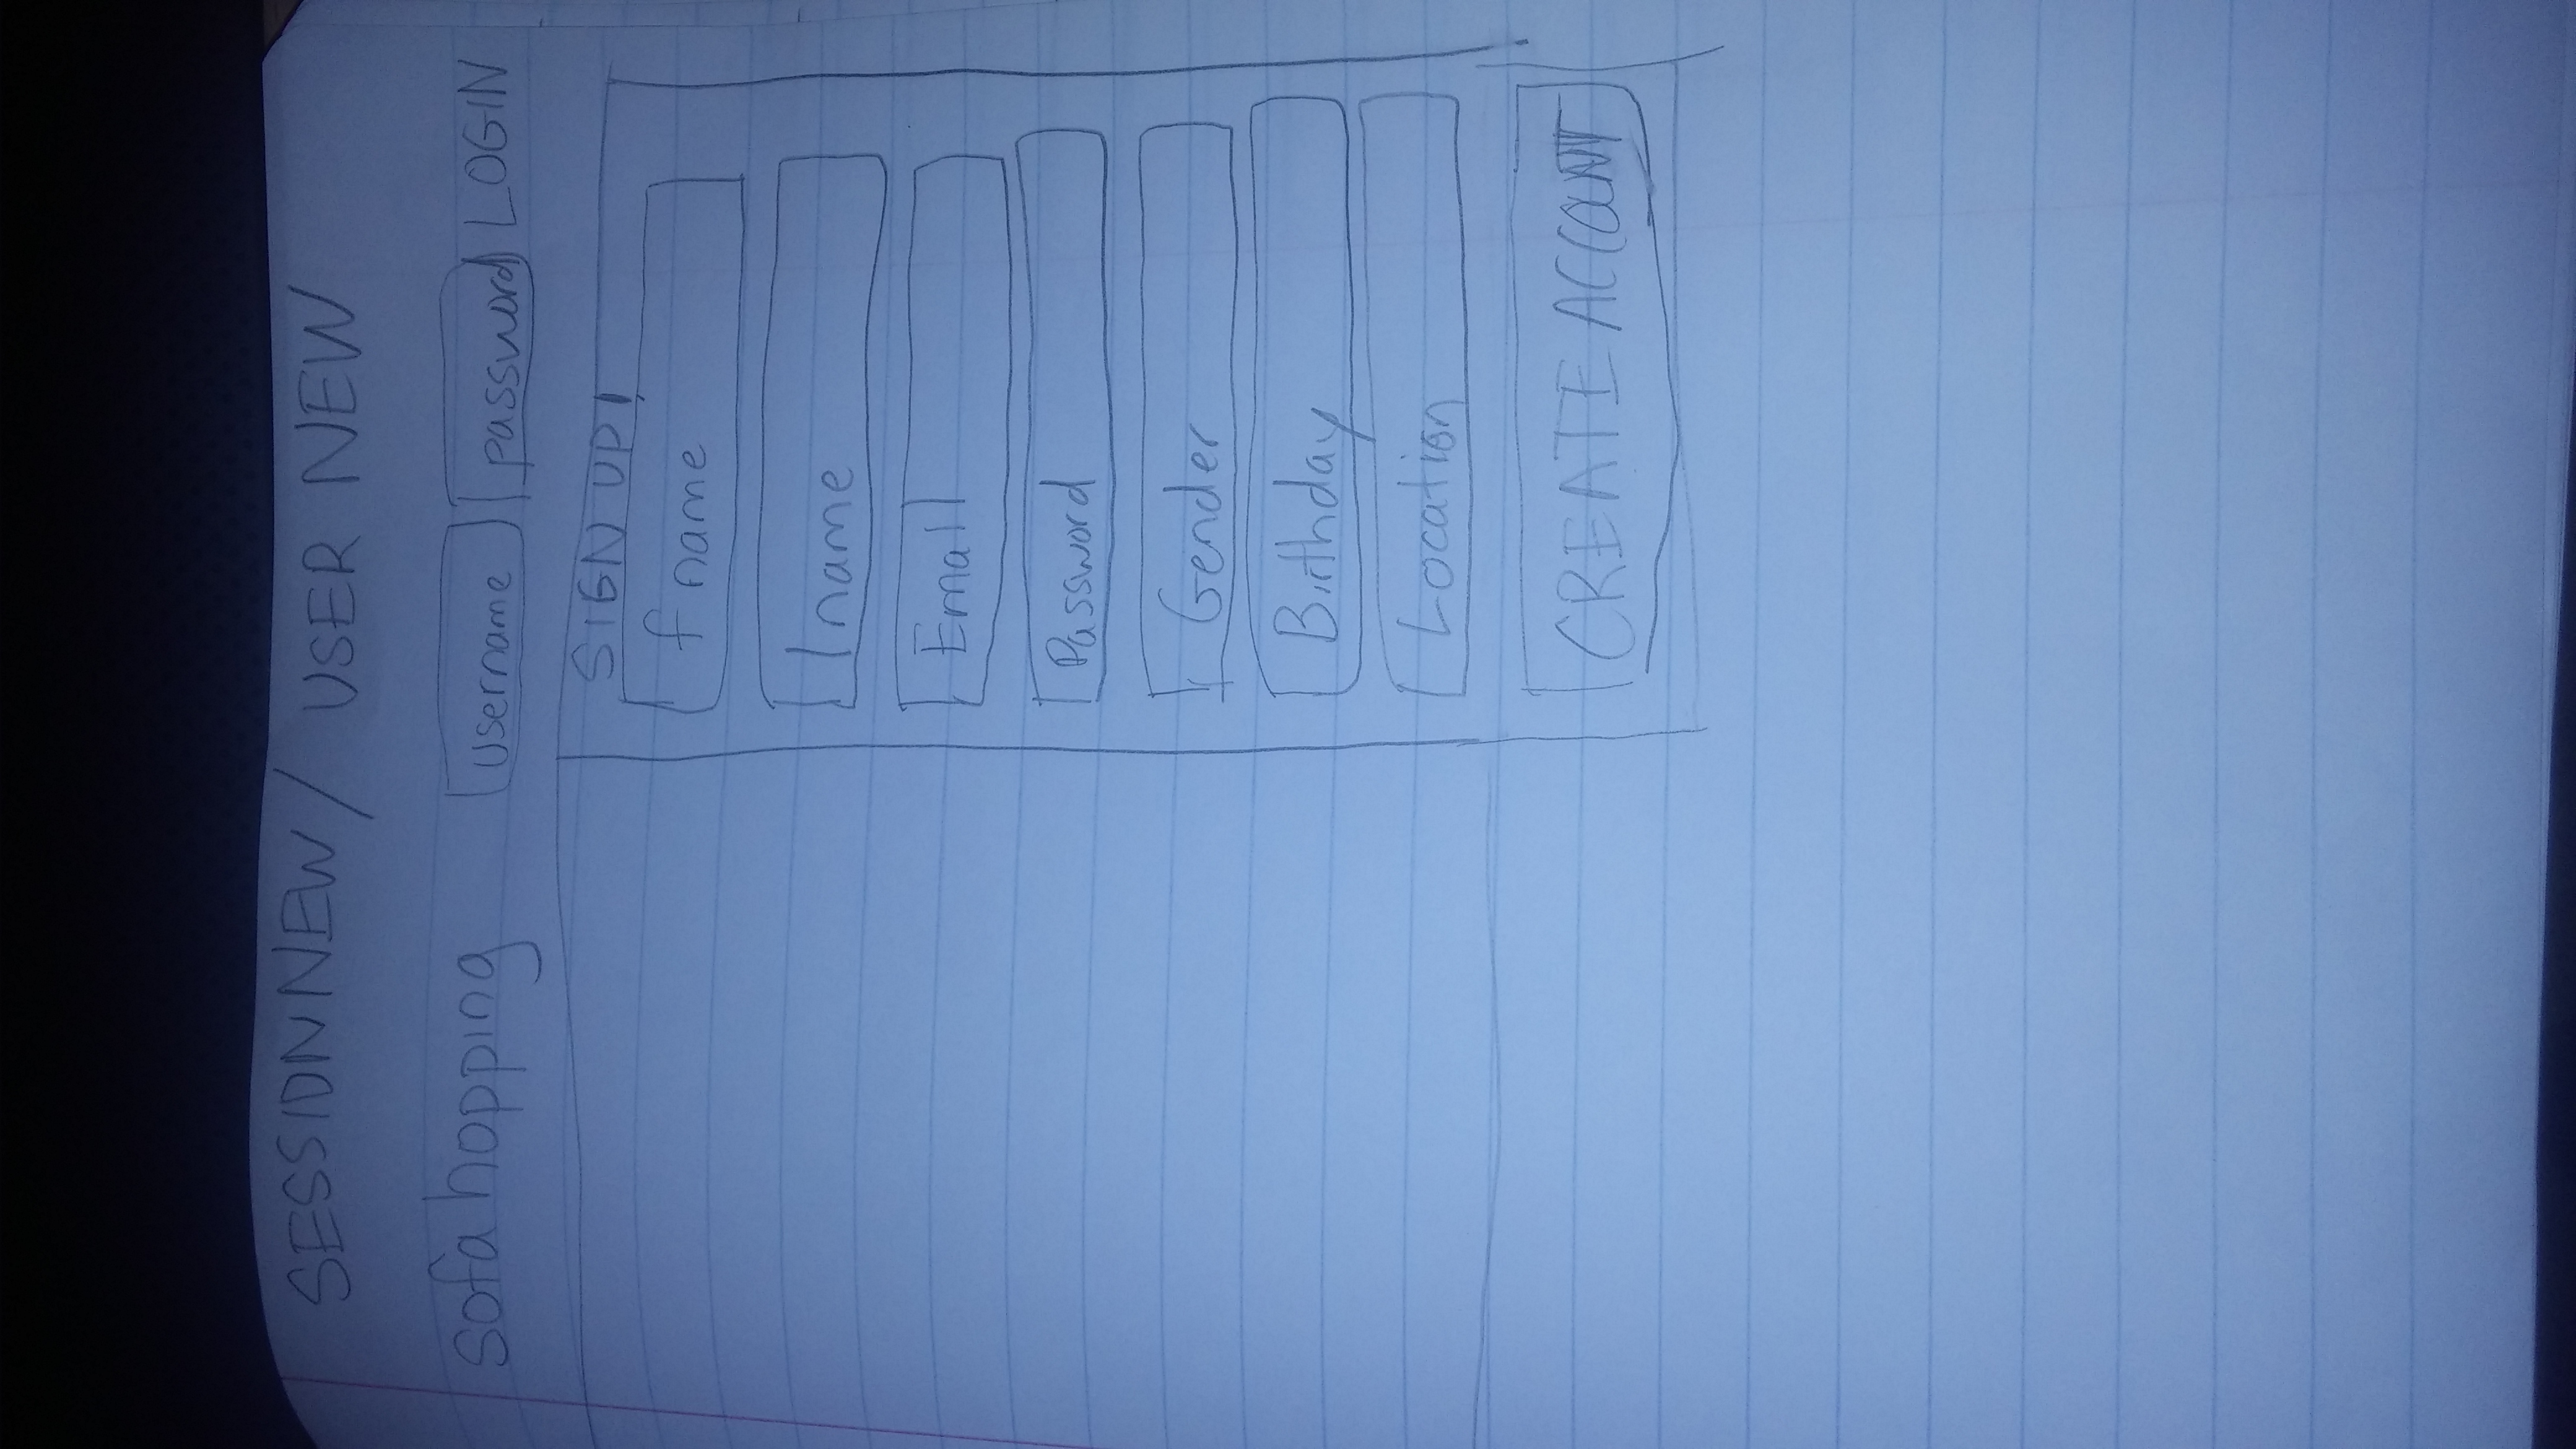 SESSION NEW / USER NEW
sofa hopping username password LOGIN
SIGN UP!
fname
lname
Email
Password
Gender
Birthday
Location
CREATE ACCOUNT